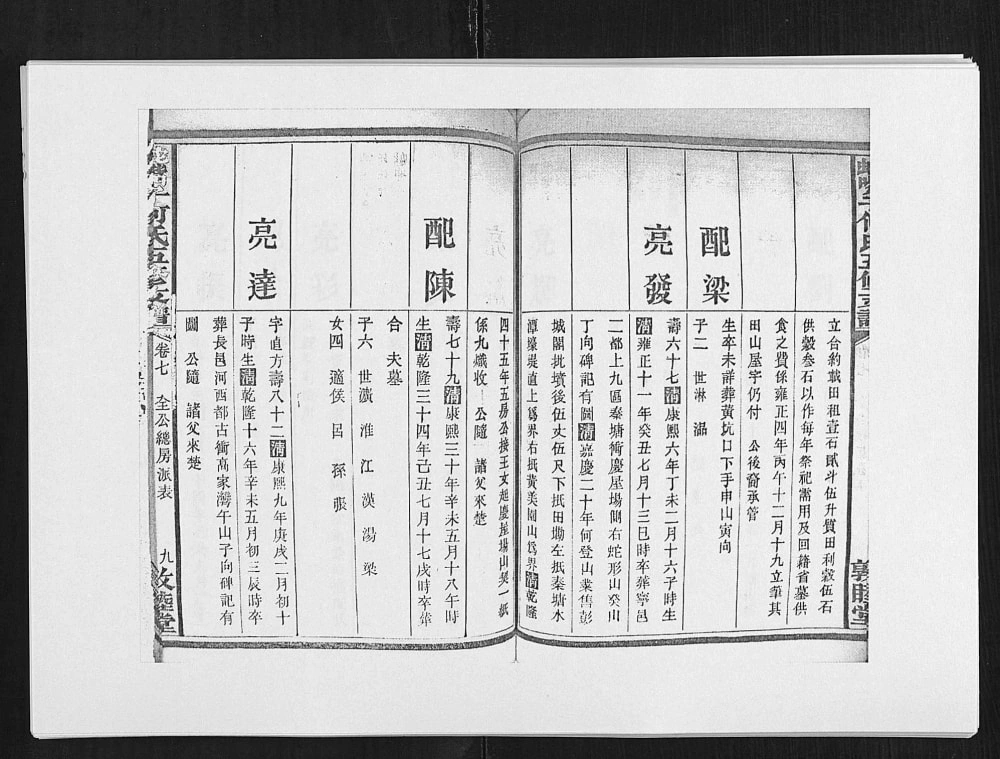 立合約載田租壹石貳斗伍升質田利穀伍石
供穀叁石以作每年祭祀需用及回籍省墓供
食之費係雍正四年丙午十二月十九立筆其
田山屋宇仍付 公後裔承管
配梁
生卒未詳葬黃坑口下手申山寅向
子二 世淋 溋
亮發
壽六十七清康熙六年丁未二月十六子時生
清雍正十一年癸丑七月十三巳時卒葬寧邑
二都上九區秦塘衝慶屋場側右蛇形山癸山
丁向碑記有圖清嘉慶二十年何登山業售彭
城閣批墳後伍丈伍尺下抵田墈左抵秦塘水
潭壕堤直上為界右抵黃美園山為界清乾隆
四十五年五房公接王文起慶屋場山契一紙
係九熾收 公隨 諸父來楚
配陳
壽七十九清康熙三十年辛未五月十八午時
生清乾隆三十四年己丑七月十七戌時卒葬
合夫墓
子六 世濱 淮 江 漢 湯 梁
女四 適侯 呂 孫 張
亮達
字直方壽八十二清康熙九年庚戌二月初十
子時生清乾隆十六年辛未五月初三辰時卒
葬長邑河西都古衝高家灣午山子向碑記有
圖 公隨 諸父來楚
何氏五修支譜 卷七 全公總房派表 九 敦睦堂